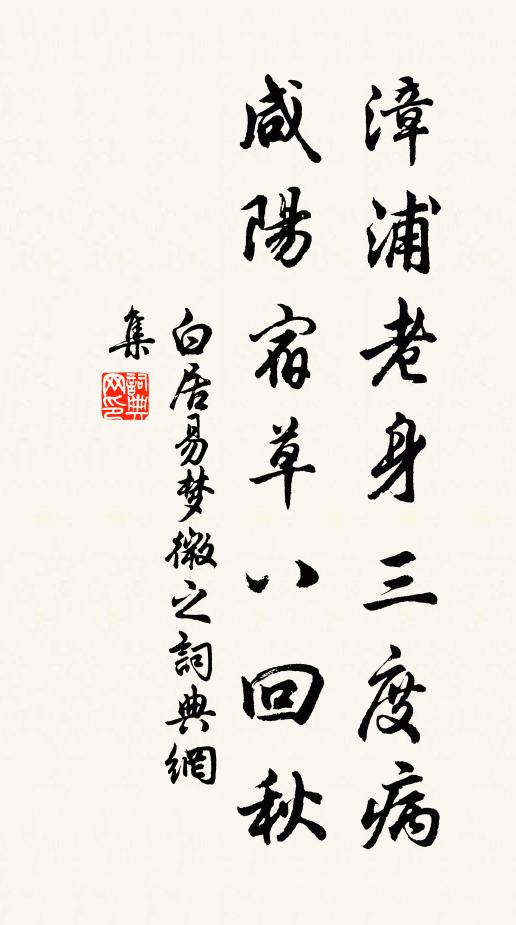 漳浦老身三度病
咸陽宿草八回秋
白居易梦微之詞典網
集
詞典
网印